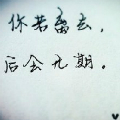 你若离去,
后会无期。